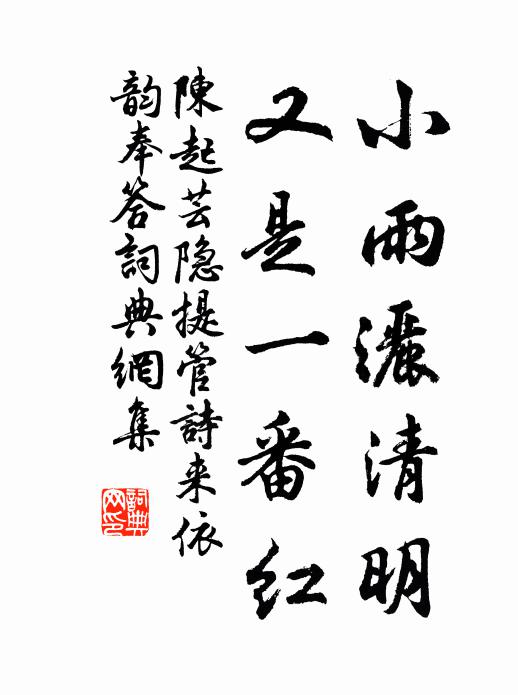 小雨灑清明
又是一番紅
陳起芸隐提管詩来依
韵奉答詞典網集
詞典網印